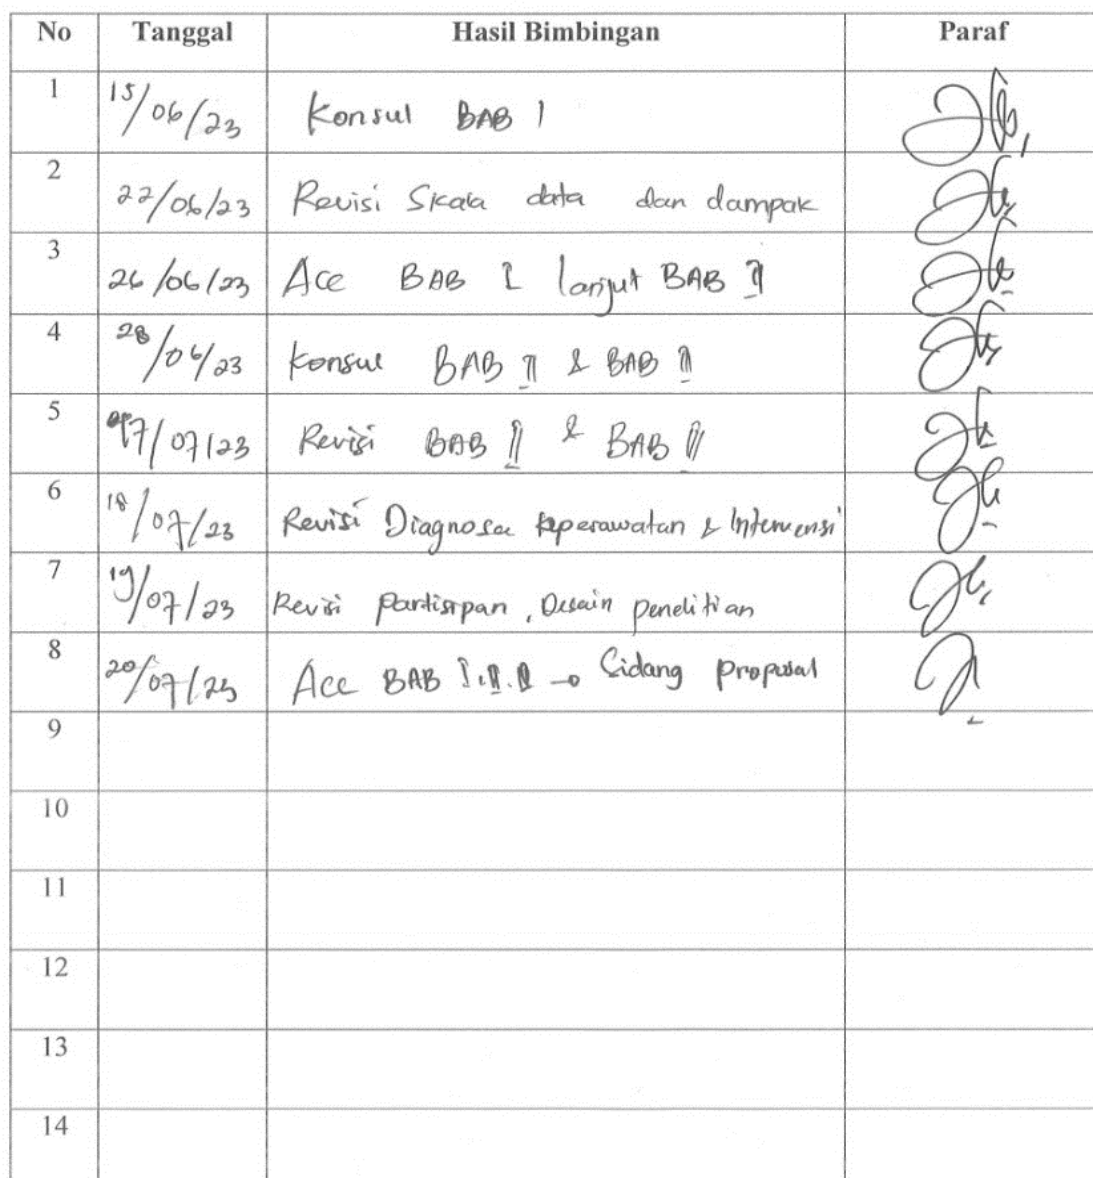 No Tanggal Hasil Bimbingan Paraf
1 15/06/23 Konsul BAB I
2 22/06/23 Revisi Skala data dan dampak
3 26/06/23 Acc BAB I lanjut BAB II
4 28/06/23 Konsul BAB II & BAB
5 /07/23 Revisi BAB II & BAB
6 18/07/23 Revisi Diagnosa keperawatan & Intervensi
7 19/07/23 Revisi Partisipan, Desain penelitian
8 20/07/23 Acc BAB I. II. III → Sidang proposal
9
10
11
12
13
14